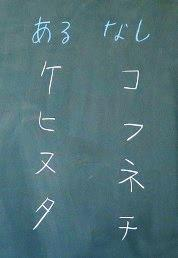 ある なし
ケ コ
ヒ フ
ヌ ネ
タ チ